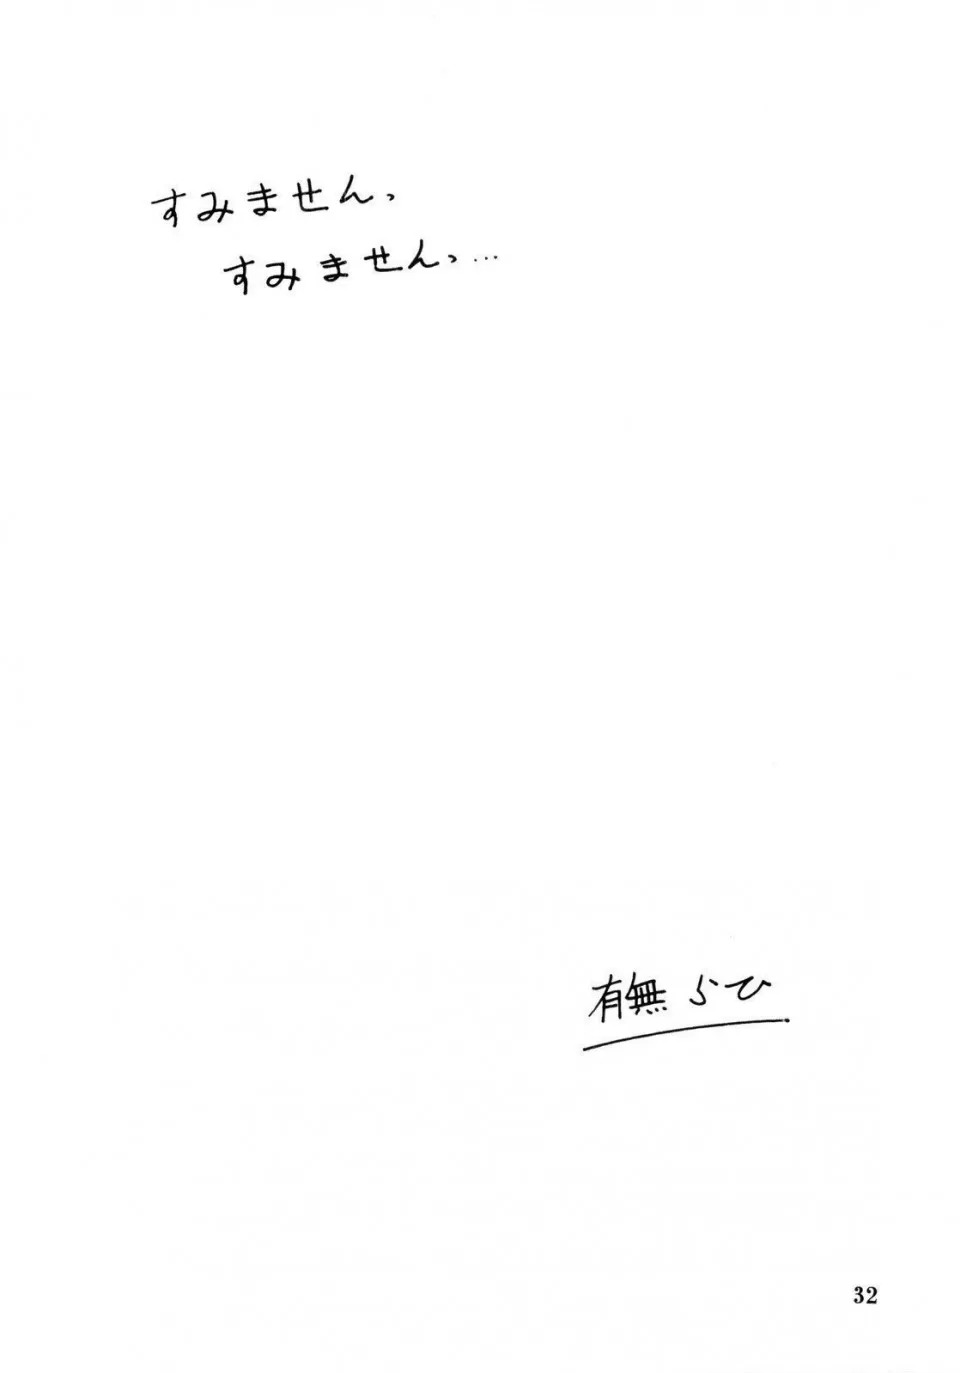 すみませんっ
すみませんっ…
有無らひ
32